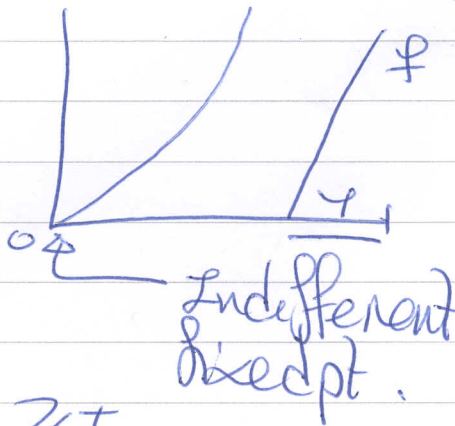 f
Y
0
Indifferent
fixed pt.